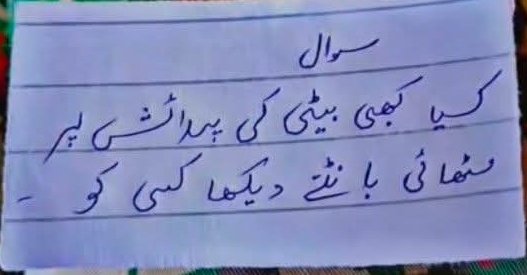 سوال
کیا کبھی بیٹی کی پیدائش پر
مٹھائی بانٹتے دیکھا کسی کو -